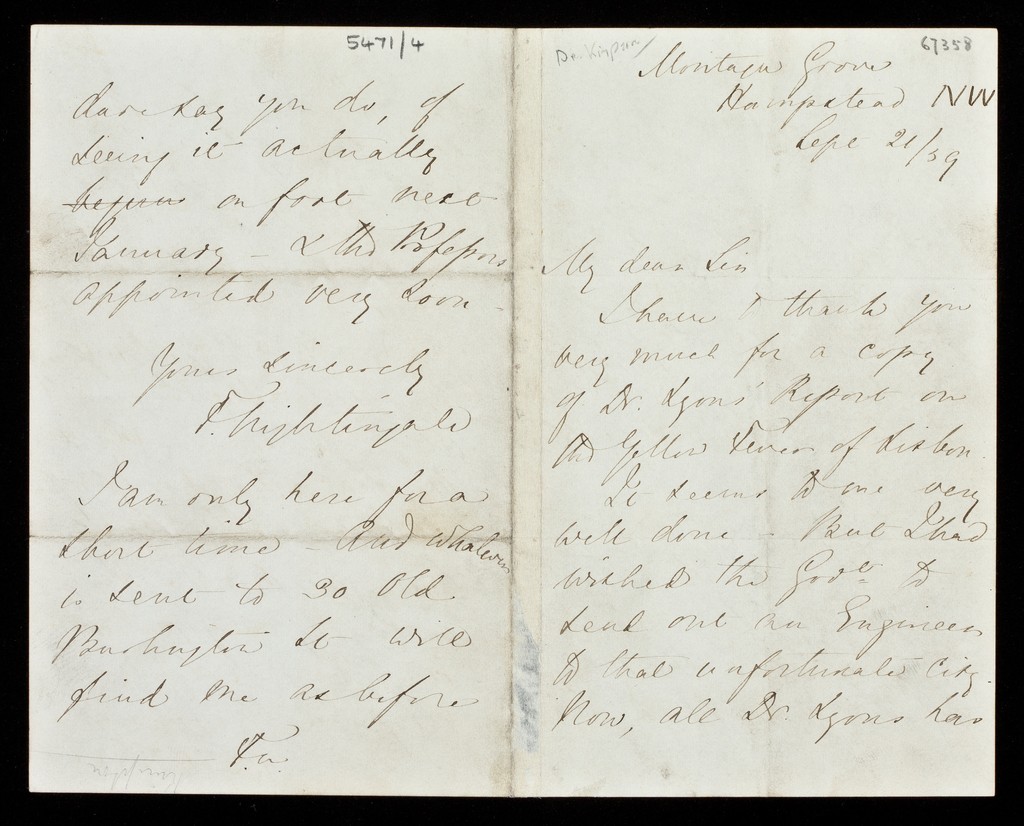 Dr. Kimpson/
67358
Montague Grove
Hampstead NW
Sept 21/59
My dear Sir
I have to thank you
very much for a copy
of Dr. Lyons' Report on
the Yellow Fever of Lisbon.
It seems to me very
well done - But I had
wished the Govt. to
send out an Engineer
to that unfortunate city.
Now, all Dr. Lyons has
5471/4
dare say you do, of
seeing it actually
begun on foot next
January - & the Professors
appointed very soon -
Yours sincerely
F. Nightingale
I am only here for a
short time - And whatever
is sent to 30 Old
Burlington St will
find me as before
F.N.